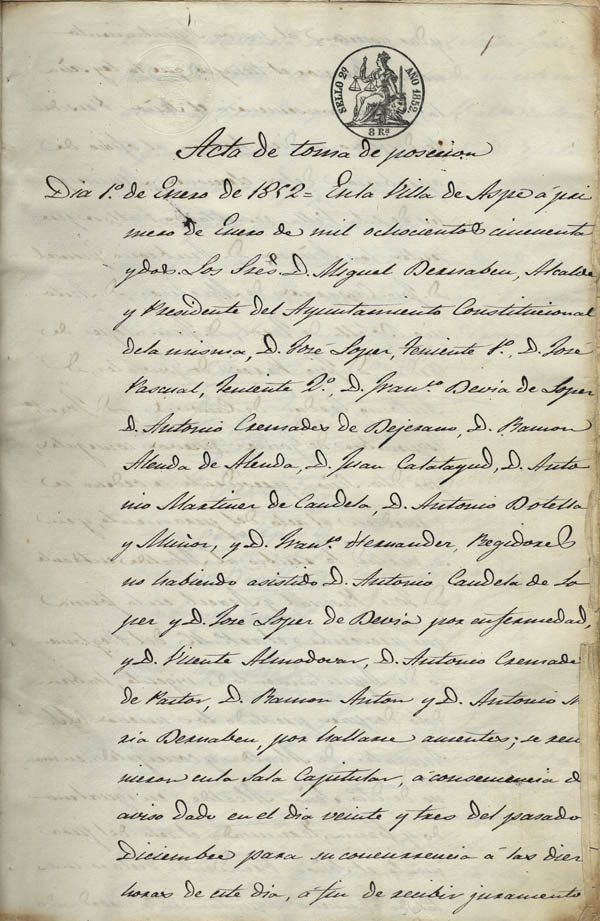 1
SELLO 2º AÑO 1852.
8 Rs
Acta de toma de posecion
Dia 1º de Enero de 1852 = En la Villa de Aspe á pri
mero de Enero de mil ochocientos cincuenta
y dos. Los Sres. D. Miguel Bernabeu, Alcalde
y Presidente del Ayuntamiento Constitucional
de la misma, D. José Soper, Teniente 1º, D. José
Pascual, Teniente 2º, D. Franco Devia de Soper
D. Antonio Cremades de Bejerano, D. Ramon
Alenda de Alenda, D. Juan Calatayud, D. Anto
nio Martinez de Candela, D. Antonio Botella
y Muñoz, y D. Franco Hernandez, Regidores
no habiendo asistido D. Antonio Candela de So
per y D. José Soper de Devia por enfermedad,
y D. Vicente Almodovar, D. Antonio Cremade
de Pastor, D. Ramon Anton y D. Antonio M
ria Bernabeu, por hallarse ausentes; se reu
nieron en la Sala Capitular, á consecuencia d
aviso dado en el dia veinte y tres del pasado
Diciembre para su concurrencia á las diez
horas de este dia, á fin de recibir juramento